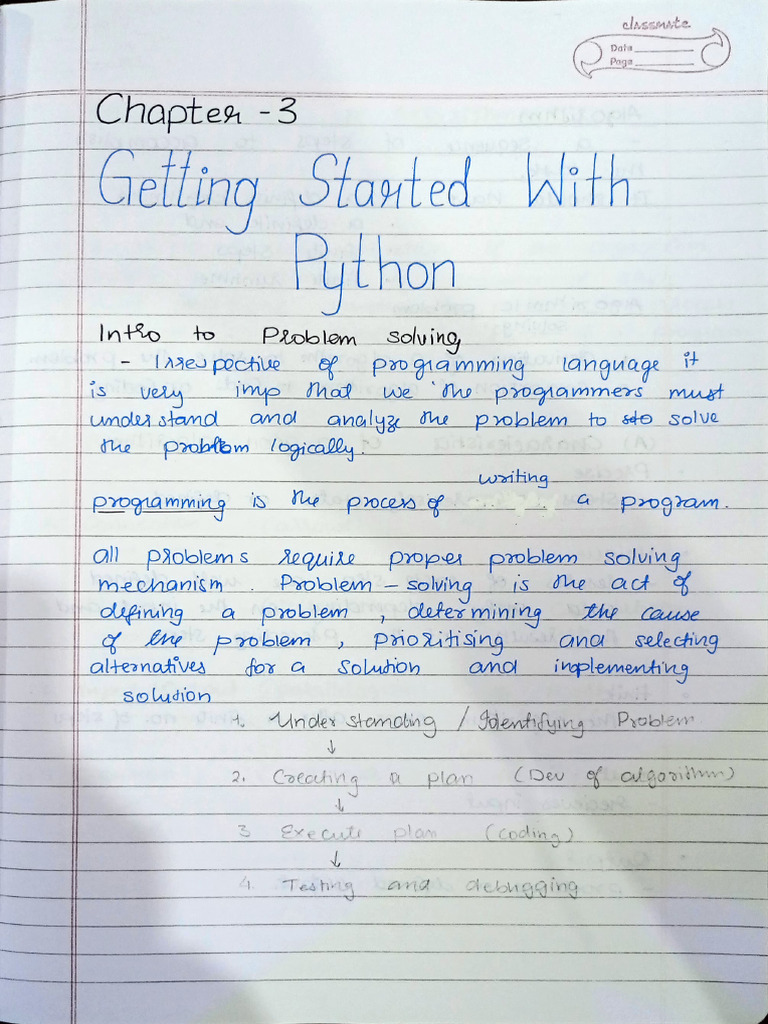 classmate
Date
Page
Chapter - 3
Getting Started With
Python
Intro to Problem solving
- Irrespective of programming language it
is very imp that we the programmers must
understand and analyze the problem to solve
the problem logically.
writing
programming is the process of a program.
all problems require proper problem solving
mechanism. Problem - solving is the act of
defining a problem, determining the cause
of the problem, prioritising and selecting
alternatives for a solution and implementing
solution
1. Understanding / Identifying Problem
↓
2. Creating a plan (Dev of algorithm)
↓
3 Execute plan (coding)
↓
4. Testing and debugging